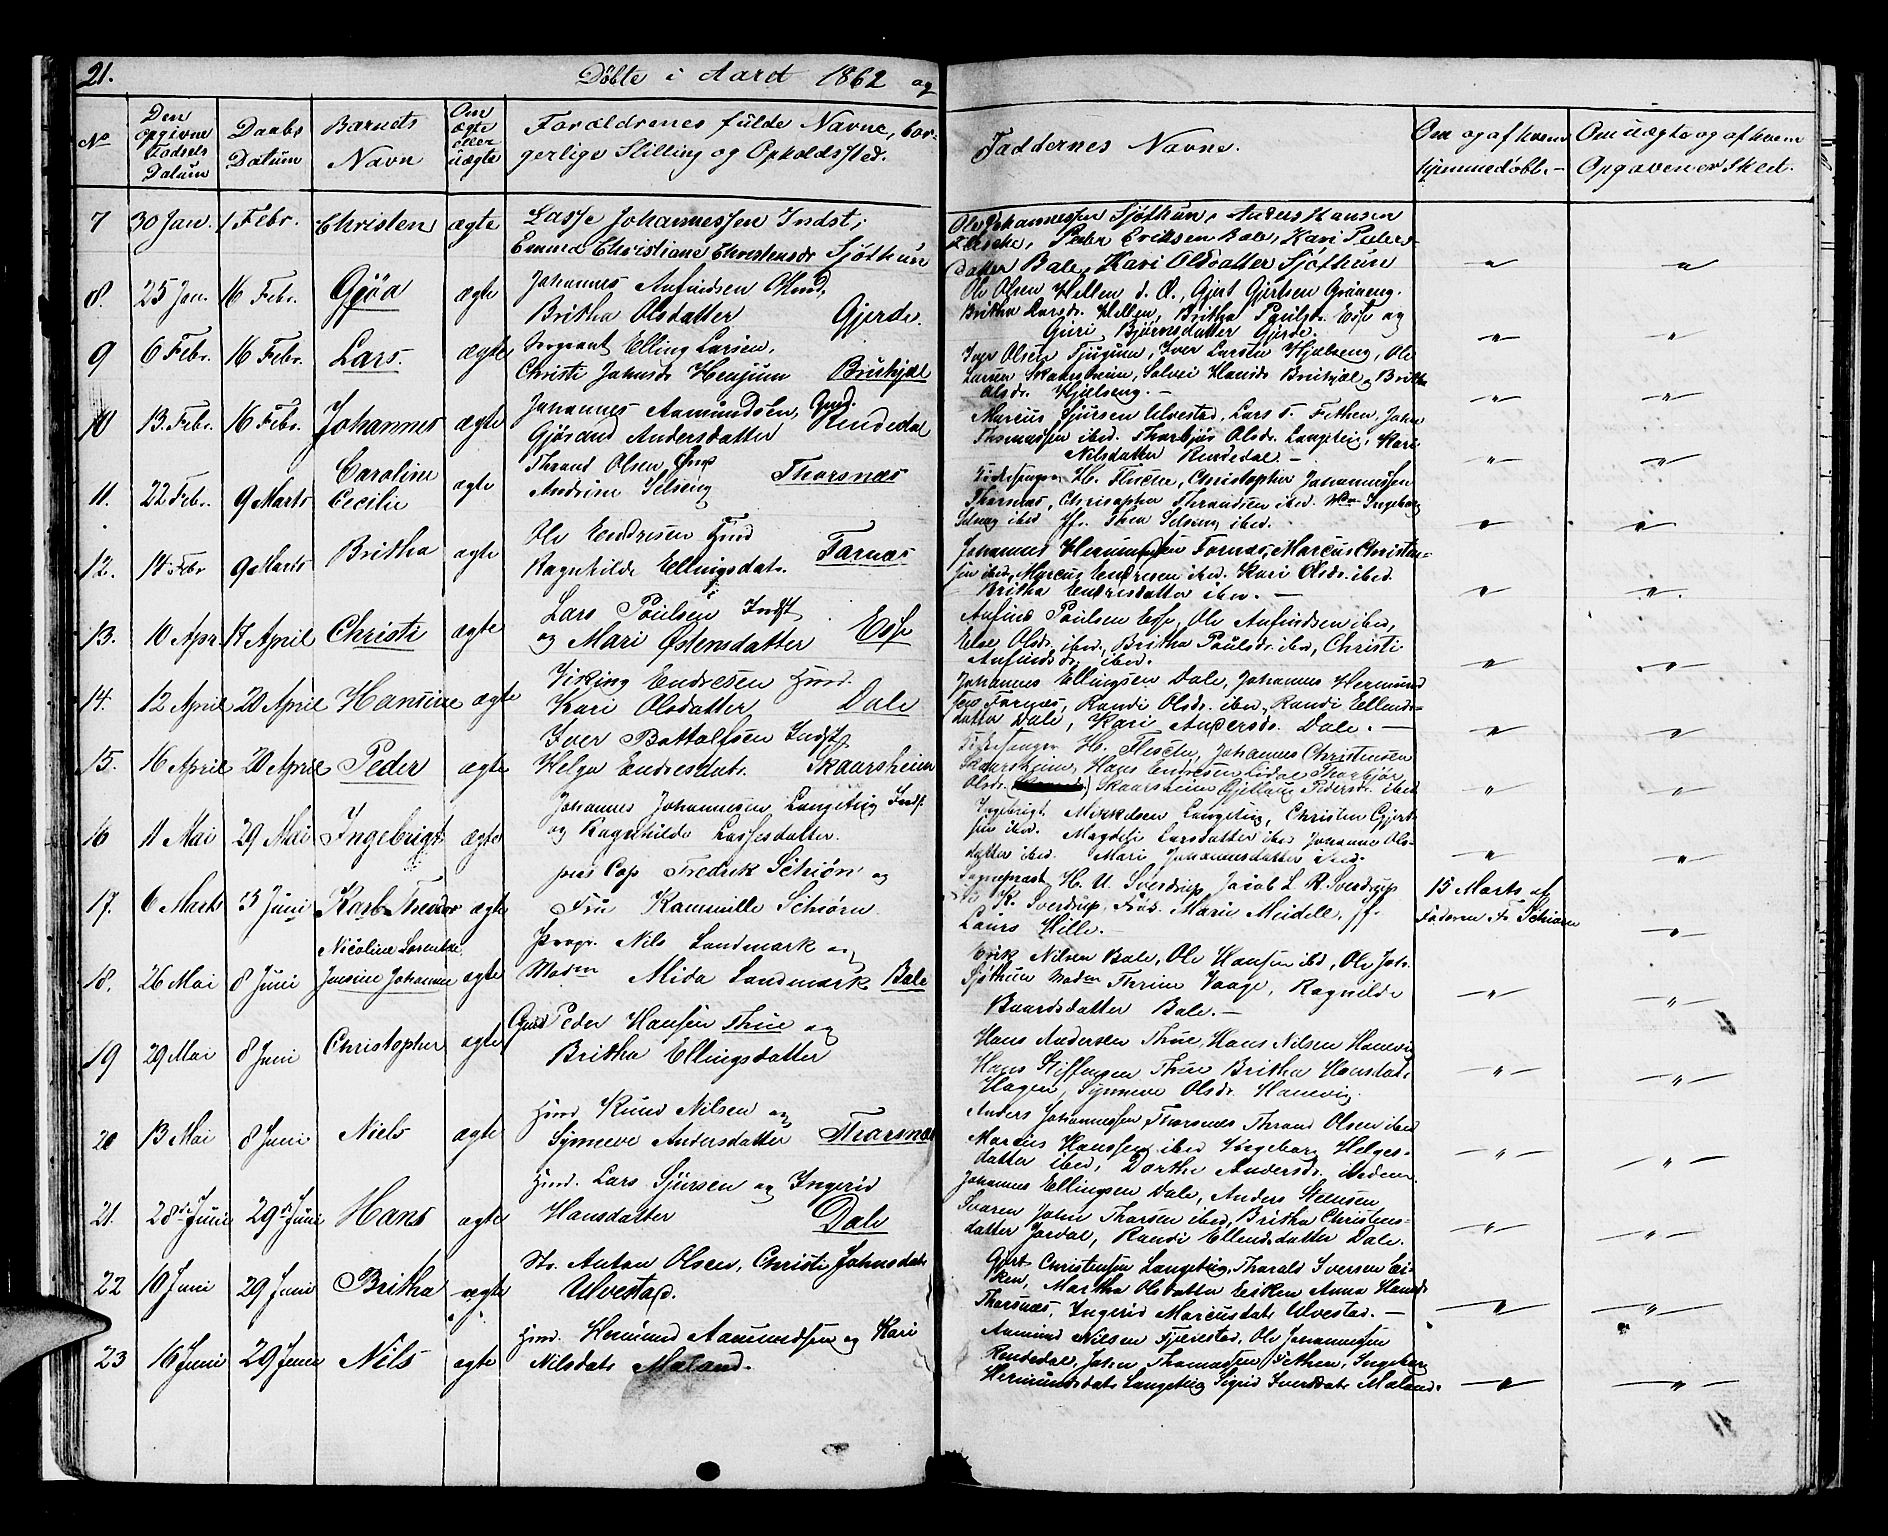 21. Döbte i Aaret 1862 og
No Den opgivne Födsels Datum Daabs Datum Barnets Navn Om ægte eller uægte Forældrenes fulde Navne, bor-
gerlige Stilling og Opholdssted. Faddernes Navne. Om og af hvem hjemmedöbt.- Om uægte og af hvem Opgaven er Skeet.
7 30 Jan. 1 Febr. Christen ægte Lasse Johannessen Indst;
Emma Christiane Christensdr Sjöthun
Ole Johannessen Sjöthun, Anders Hansen
Peder Eriksen Bale, Kari Peders-
datter Bale, Kari Olsdatter Sjöthun
8. 25 Jan. 16 Febr. Gjöa ægte Johannes Anfindsen
Britha Olsdatter Gjerde.
Ole Olsen Hellen d. Æ., Gjert Gjertsen
Britha Larsdr. Hellen, Britha Paulsdr. Esse og
Guri Björnsdatter Gjerde.
9 6 Febr. 16 Febr. Lars ægte Sergeant Elling Larsen,
Christi Johnsdr Henjum Bruhjæl
Iver Olsen Tjugum, Iver Larsen Hjælseng, Ole
Larsen Skaarsheim, Solvei Hansdr Bruhjæl og Britha
Olsdr. Hjælseng.-
10 13 Febr. 16 Febr. Johannes ægte Johannes Aamundsen, Gmd.
Gjörand Andersdatter Rendedal
Marcus Sjursen Ulvestad, Lars S. Fethen, John
Thomassen ibed. Thorbjör Olsdr. Langeteig, Kari
Nilsdatter Rendedal.-
11. 22 Febr. 9 Marts Caroline
Cecilie ægte Thrond Olsen
Andrine Selseng Thorsnæs
Kirkesanger H. Flesche, Christopher Johannessen
Thorsnæs, Christopher Throndsen ibed. Ingeborg
Selseng ibed Jfr. Thea Selseng ibed.
12. 14 Febr 9 Marts Britha ægte Ole Endresen Hmd
Ragnhilde Ellingsdatr. Farnæs
Johannes Hermundsen Farnæs, Marcus Christen-
sen ibed, Marcus Endresen ibed. Kari Olsdr. ibed.
Britha Endresdatter ibed.-
13. 10 Apr 17 April Christi ægte Lars Poulsen Indst
og Mari Östensdatter Esse
Anfind Poulsen Esse, Ole Anfindsen ibed,
Else Olsdr. ibed., Britha Poulsdr. ibed, Christi
Anfindsdr, ibed.
14. 12 April 20 April Hansine ægte Viking Endresen Hmd.
Kari Olsdatter Dale
Johannes Ellingsen Dale, Johannes Hermund
sen Farnæs, Randi Olsdr. ibed, Randi Ellends-
datter Dale, Kari Andersdr. Dale.-
15. 16 April 20 April Peder ægte Iver Bottolfsen Indst
Helga Endresdatr. Skaarsheim
Kirkesanger H. Flesche, Johannes Christensen
Skaarsheim, Hans Endresen Lidal Thorbjör
Olsdr. Skaarsheim Gjertrug Pedersdr. ibed
16 11 Mai 29 Mai Ingebrigt ægte Johannes Johannesen Langeteig Indst
og Ragnhilde Lassesdatter.
Ingebrigt Mikkelsen Langeteig, Christen Gjert
sen ibed. Magdeli Larsdatter ibed Johanne Ols-
datter ibed. Mari Johannesdatter ibed.
17. 6 Marts 3 Juni Karl Theodor ægte pers Cap Fredrik Schiörn og
Fru Kammille Schiörn
Sognepræst H. U. Sverdrup, Jacob L. R. Sverdrup
Fru K. Sverdrup, Marie Meidell, jf.
Laurs Hille.-
15 Marts af
Faderen Fr Schiörn
18. 26 Mai 8 Juni Nicoline Lorentze
Jensine Johanne ægte Propr. Nils Landmark og
Madm Alida Landmark Bale
Erik Nilsen Bale, Ole Hansen ibd, Ole Joh.
Sjöthun Madm Thrine Vaage, Ragnilde
Baardsdatter Bale.-
19 29 Mai 8 Juni Christopher ægte Gmd Peder Hansen Thue og
Britha Ellingsdatter
Hans Andersen Thue, Hans Nilsen Hanevig
Hans Steffensen Thue Britha Hansdatr
Hagen, Synneve Olsdr. Hanevig.
20 13 Mai 8 Juni Niels ægte Hmd Knud Nilsen og
Synneve Andersdatter Thorsnæs
Anders Johannessen Thorsnes Thrond Olsen ibed
Marcus Hanssen ibed Ingeborg Helges-
datter ibed, Dorthe Andersdr. ibidem.
21. 28de Juni 29de Juni Hans ægte Hmd. Lars Sjursen og Ingerid
Hansdatter Dale
Johannes Ellingsen Dale, Anders Steensen
Svaren John Thorsen ibed, Britha Christens-
datter Jordal, Randi Ellendsdatter Dale.
22 10 Juni 29 Juni Britha ægte Str. Anton Olsen, Christi Johnsdatr
Ulvestad.
Gjert Christensen Langeteig, Tharald Iversen Ei-
ken, Martha Olsdatter Eiken Anna Hansdr
Thorsnæs, Ingerid Marcusdatr Ulvestad.-
23 16 Juni 29 Juni Nils ægte Hmd. Hermund Aamundsen og Kari
Nilsdatr Maland.
Aamund Nilsen Fjærestad, Ole Johannessen
Rendedal, John Thomassen Fethen, Ingeborg
Hermundsdatr Langeteig Sigrid Iversdatr Maland.